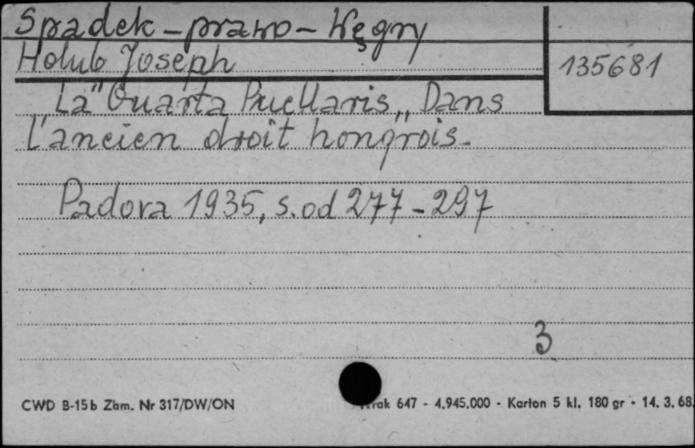 Spadek - prawo - Węgry
Holub Joseph
135681
La "Quarta Puellaris" Dans
l'ancien droit hongrois.
Padova 1935, s. od 277 - 297
3
CWD B-15b Zam. Nr 317/DW/ON
647 - 4.945.000 - Karton 5 kl. 180 gr - 14. 3. 68